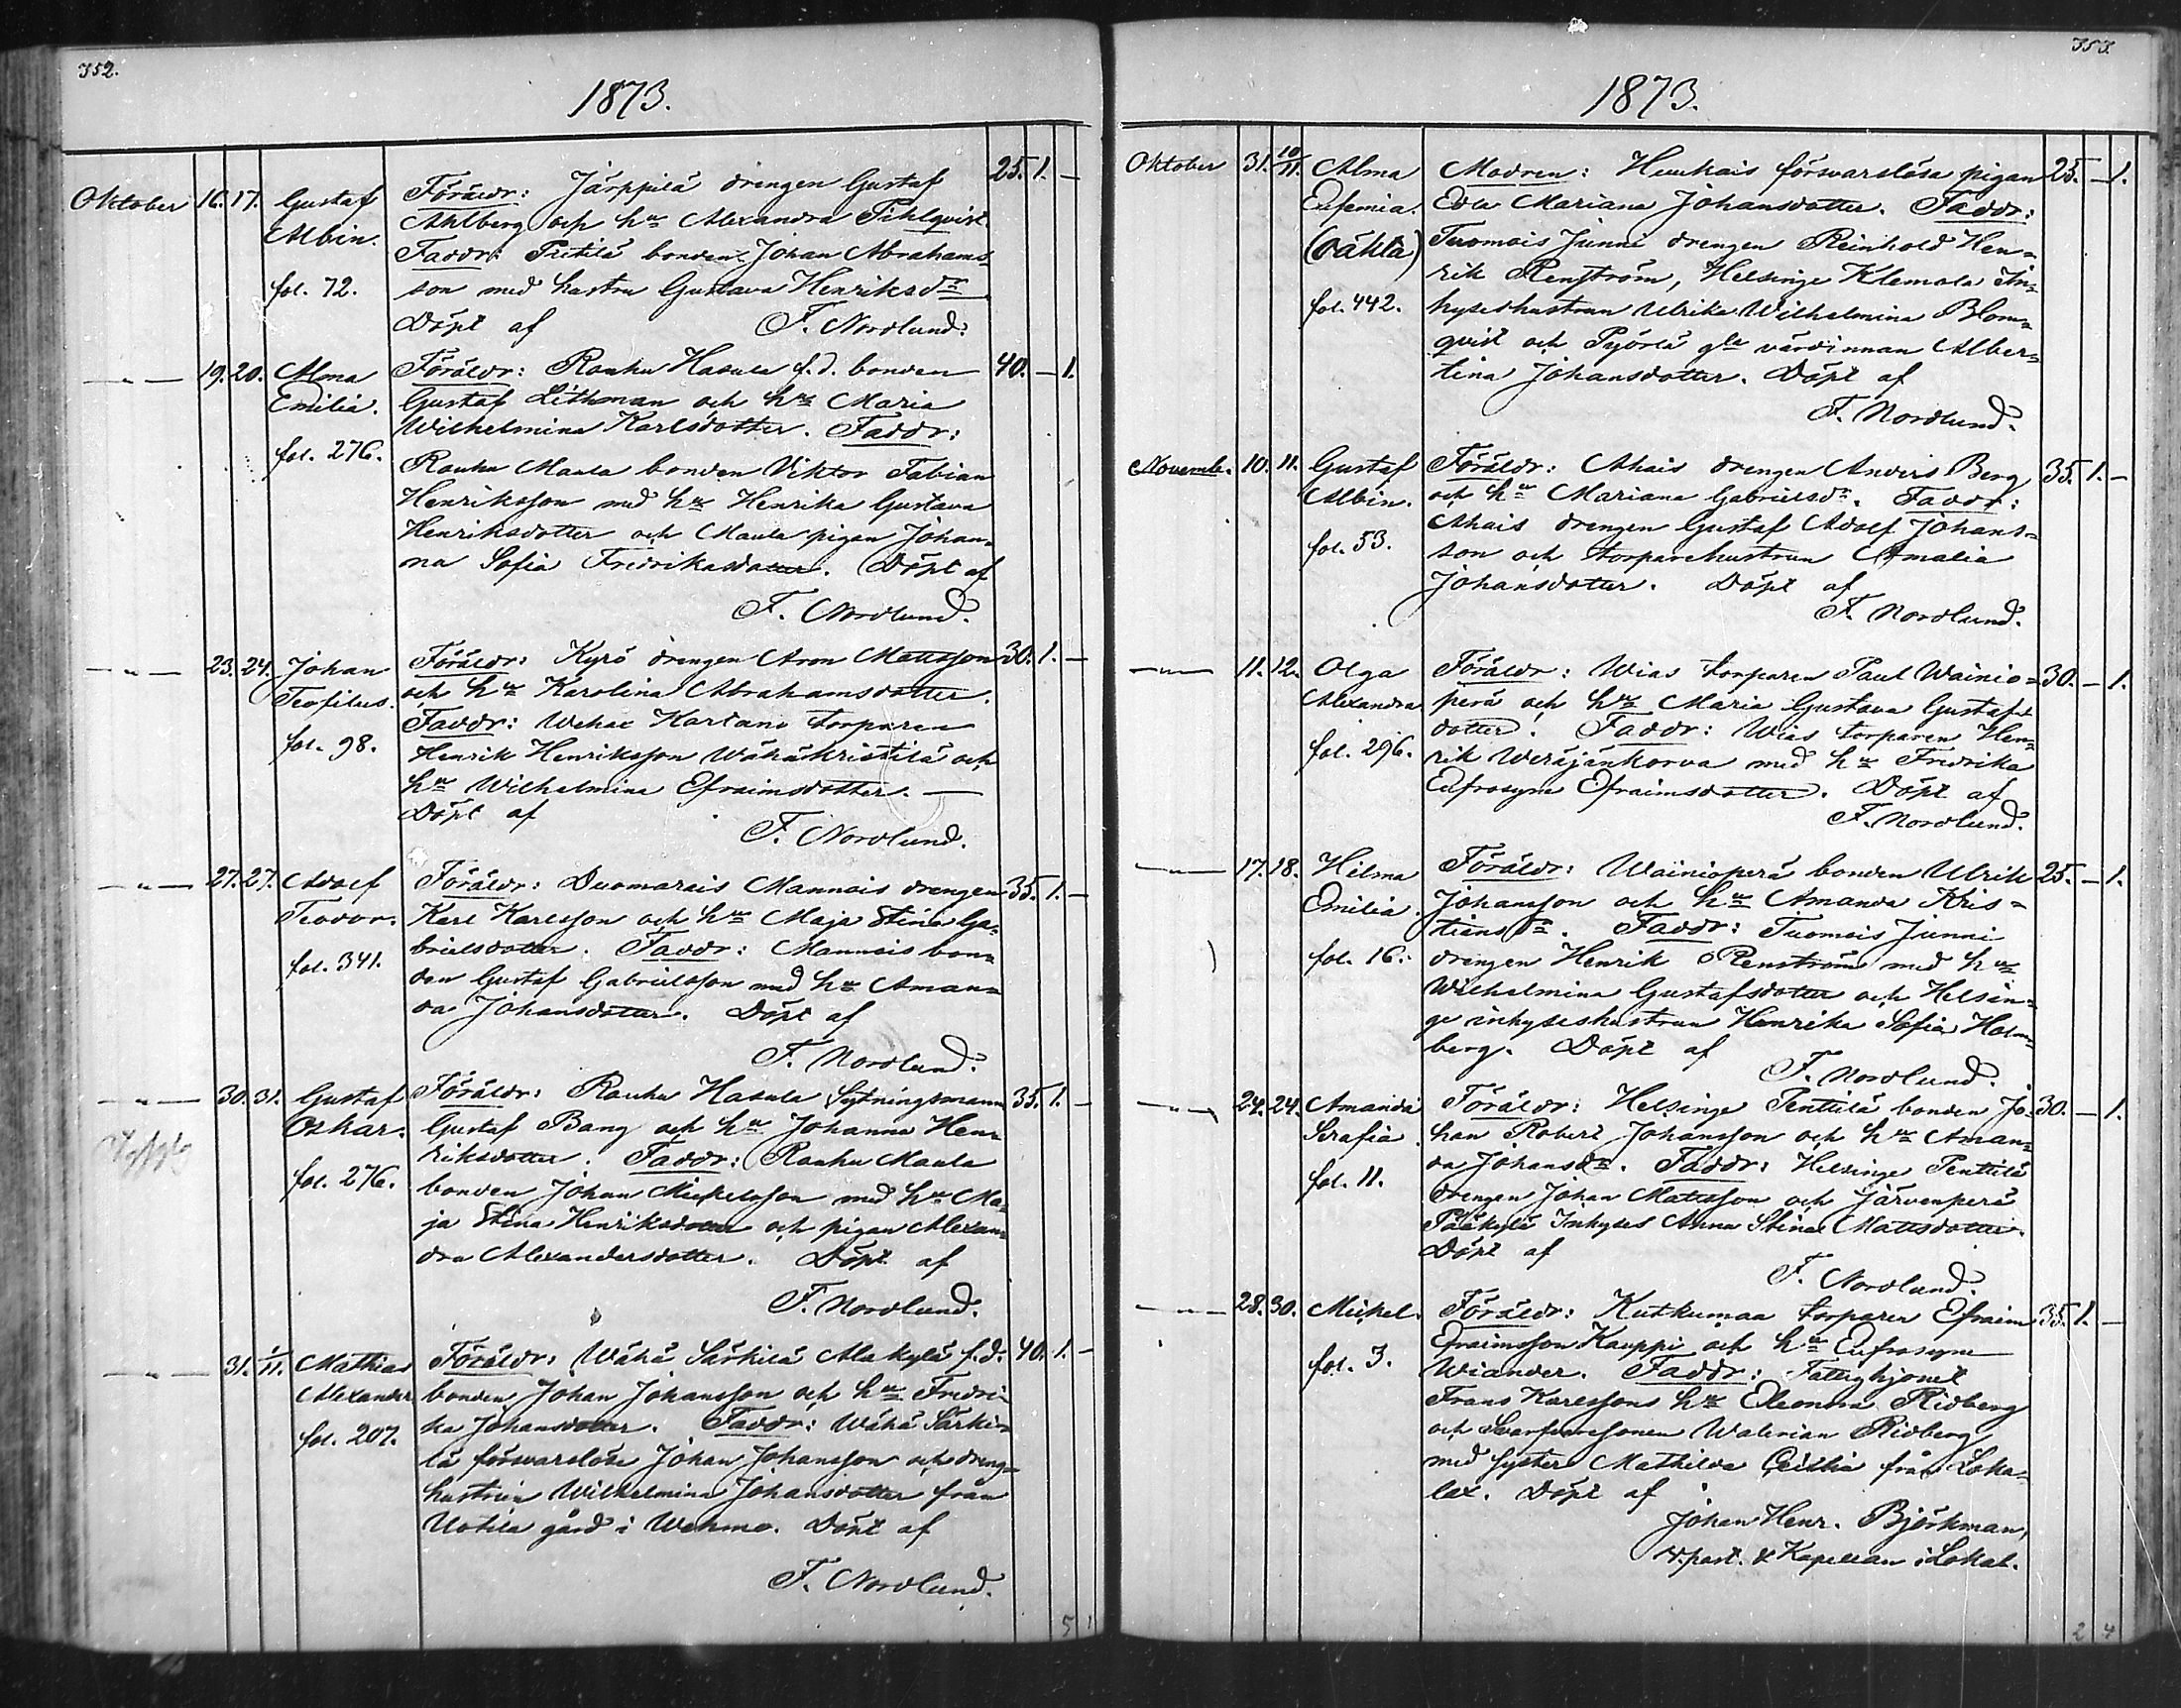 352.
1873.
Oktober 16. 17. Gustaf Albin. fol. 72.
Föräldr: Järppilä drengen Gustaf 25. 1. —
Ahlberg och hu Alexandra Pihlqvist.
Faddr: Pietilä bonden Johan Abrahams-
son med hustru Gustava Henriksdr
Döpt af F. Nordlund.
— " — 19. 20. Alma Emilia. fol. 276.
Föräldr: Rauhu Hasula f.d. bonden 40. — 1.
Gustaf Lithman och hu Maria
Wilhelmina Karlsdotter. Faddr:
Rauhu Maula bonden Viktor Fabian
Henriksson med hu Henrika Gustava
Henriksdotter och Maula pigan Johan-
na Sofia Fredriksdotter. Döpt af
F. Nordlund.
— " — 23. 24. Johan Teofilus. fol. 98.
Föräldr: Kyrö drengen Aron Mattsson 30. 1. —
och hu Karolina Abrahamsdotter.
Faddr: Wehax Kartano torparen
Henrik Henriksson Wähäkristilä och
hu Wilhelmina Efraimsdotter. —
Döpt af
F. Nordlund.
— " — 27. 27. Adolf Teodor. fol. 341.
Föräldr: Duomarais Mannais drengen 35. 1. —
Karl Karlsson och hu Maja Stina Ga-
brielsdotter. Faddr: Mannais bon-
den Gustaf Gabrielsson med hu Aman-
da Johansdotter. Döpt af
F. Nordlund.
— " — 30. 31. Gustaf Oskar. fol. 276.
Föräldr: Rauhu Hasula Sytningsmann 35. 1. —
Gustaf Bang och hu Johanna Hen-
riksdotter. Faddr: Rauhu Maula
bonden Johan Mickelsson med hu Ma-
ja Stina Henriksdotter och pigan Alexan-
dra Alexandersdotter. Döpt af
F. Nordlund.
— " — 31. 1/11. Mathias Alexander fol. 207.
Föräldr: Wähä Särkilä Alakylä f.d. 40. 1. —
bonden Johan Johansson och hu Fredri-
ka Johansdotter. Faddr: Wähä Särki-
lä försvarslöse Johan Johansson och dreng-
hustrun Wilhelmina Johansdotter från
Uotila gård i Wehmo. Döpt af
F. Nordlund.
5 1
353.
1873.
Oktober 31. 10/11. Alma Eufemia. (oäkta) fol. 442.
Modren: Huukais försvarslösa pigan 25. — 1.
Eva Mariana Johansdotter. Faddr:
Tuomois Junni drengen Reinhold Hen-
rik Renström, Helsinge Klemola In-
hyseshustrun Ulrika Wilhelmina Blom-
qvist och Pyörlä gla värdinnan Alber-
tina Johansdotter. Döpt af
F. Nordlund.
Novemb. 10. 11. Gustaf Albin. fol. 53.
Föräldr: Ahais drengen Anders Berg 35. 1. —
och hu Mariana Gabrielsdr. Faddr:
Ahais drengen Gustaf Adolf Johans-
son och torparehustrun Amalia
Johansdotter. Döpt af
F. Nordlund.
— " — 11. 12. Olga Alexandra fol. 296.
Föräldr: Wias torparen Paul Wainio- 30. — 1.
perä och hu Maria Gustava Gustafs-
dotter. Faddr: Wias torparen Hen-
rik Weräjänkorva med hu Fredrika
Eufrosyne Efraimsdotter. Döpt af
F. Nordlund.
— " — 17. 18. Hilma Emilia. fol. 16.
Föräldr: Wainioperä bonden Ulrik 25. — 1.
Johansson och hu Amanda Kris-
tiansdr. Faddr: Tuomois Junni
drengen Henrik Renström med hu
Wilhelmina Gustafsdotter och Helsin-
ge inhyseshustrun Henrika Sofia Holm-
berg. Döpt af
F. Nordlund.
— " — 24. 24. Amanda Serafia. fol. 11.
Föräldr: Helsinge Penttilä bonden Jo- 30. — 1.
han Robert Johansson och hu Aman-
da Johansdr. Faddr: Helsinge Penttilä
drengen Johan Mattsson och Järvenperä
Pääkylä Inhyses Anna Stina Mattsdotter.
Döpt af
F. Nordlund.
— " — 28. 30. Mickel. fol. 3.
Föräldr: Kutkumaa torparen Efraim 35. 1. —
Efraimsson Kauppi och hu Eufrosyne
Wiander. Faddr: Fattighjonet
Frans Karlssons hu Eleonora Ridberg
och Svarfvaresonen Walerian Ridberg
med syster Mathilda Cecilia från Loka-
lax. Döpt af
Johan Henr. Björkman,
v. past. & Kapellan i Lokal.
2 4